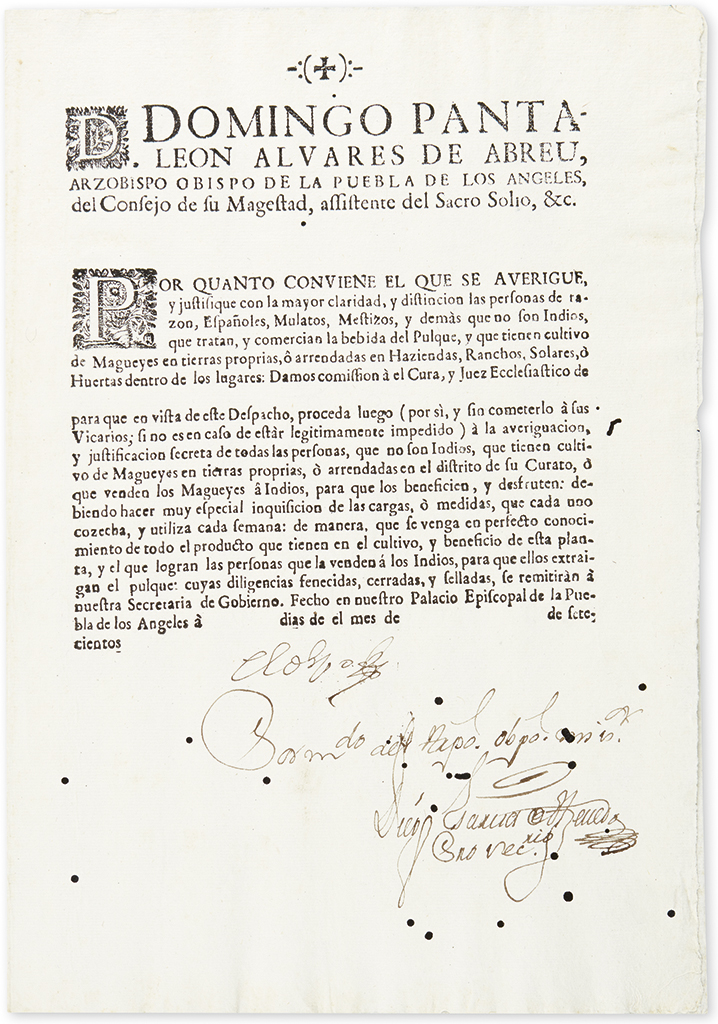 -:(✠):-
D. DOMINGO PANTA-
LEON ALVARES DE ABREU,
ARZOBISPO OBISPO DE LA PUEBLA DE LOS ANGELES,
del Conſejo de ſu Mageſtad, aſſiſtente del Sacro Solio, &c.
POR QUANTO CONVIENE EL QUE SE AVERIGUE,
y juſtifique con la mayor claridad, y diſtincion las perſonas de ra-
zon, Eſpañoles, Mulatos, Meſtizos, y demàs que no ſon Indios,
que tratan, y comercian la bebida del Pulque, y que tienen cultivo
de Magueyes en tierras proprias, ô arrendadas en Haziendas, Ranchos, Solares, ò
Huertas dentro de los lugares: Damos comiſſion à el Cura, y Juez Eccleſiaſtico de
para que en viſta de eſte Deſpacho, proceda luego ( por sì, y ſin cometerlo à ſus
Vicarios, ſi no es en caſo de eſtàr legitimamente impedido ) à la averiguacion,
y juſtificacion ſecreta de todas las perſonas, que no ſon Indios, que tienen culti-
vo de Magueyes en tierras proprias, ò arrendadas en el diſtrito de ſu Curato, ò
que venden los Magueyes â Indios, para que los beneficien, y desfruten: de-
biendo hacer muy eſpecial inquiſicion de las cargas, ò medidas, que cada uno
cozecha, y utiliza cada ſemana: de manera, que ſe venga en perfecto conoci-
miento de todo el producto que tienen en el cultivo, y beneficio de eſta plan-
ta, y el que logran las perſonas que la venden á los Indios, para que ellos extrai-
gan el pulque: cuyas diligencias fenecidas, cerradas, y ſelladas, ſe remitiràn à
nueſtra Secretaria de Gobierno. Fecho en nueſtro Palacio Epiſcopal de la Pue-
bla de los Angeles à dias de el mes de de ſete-
cientos
Por mdo del
Diego